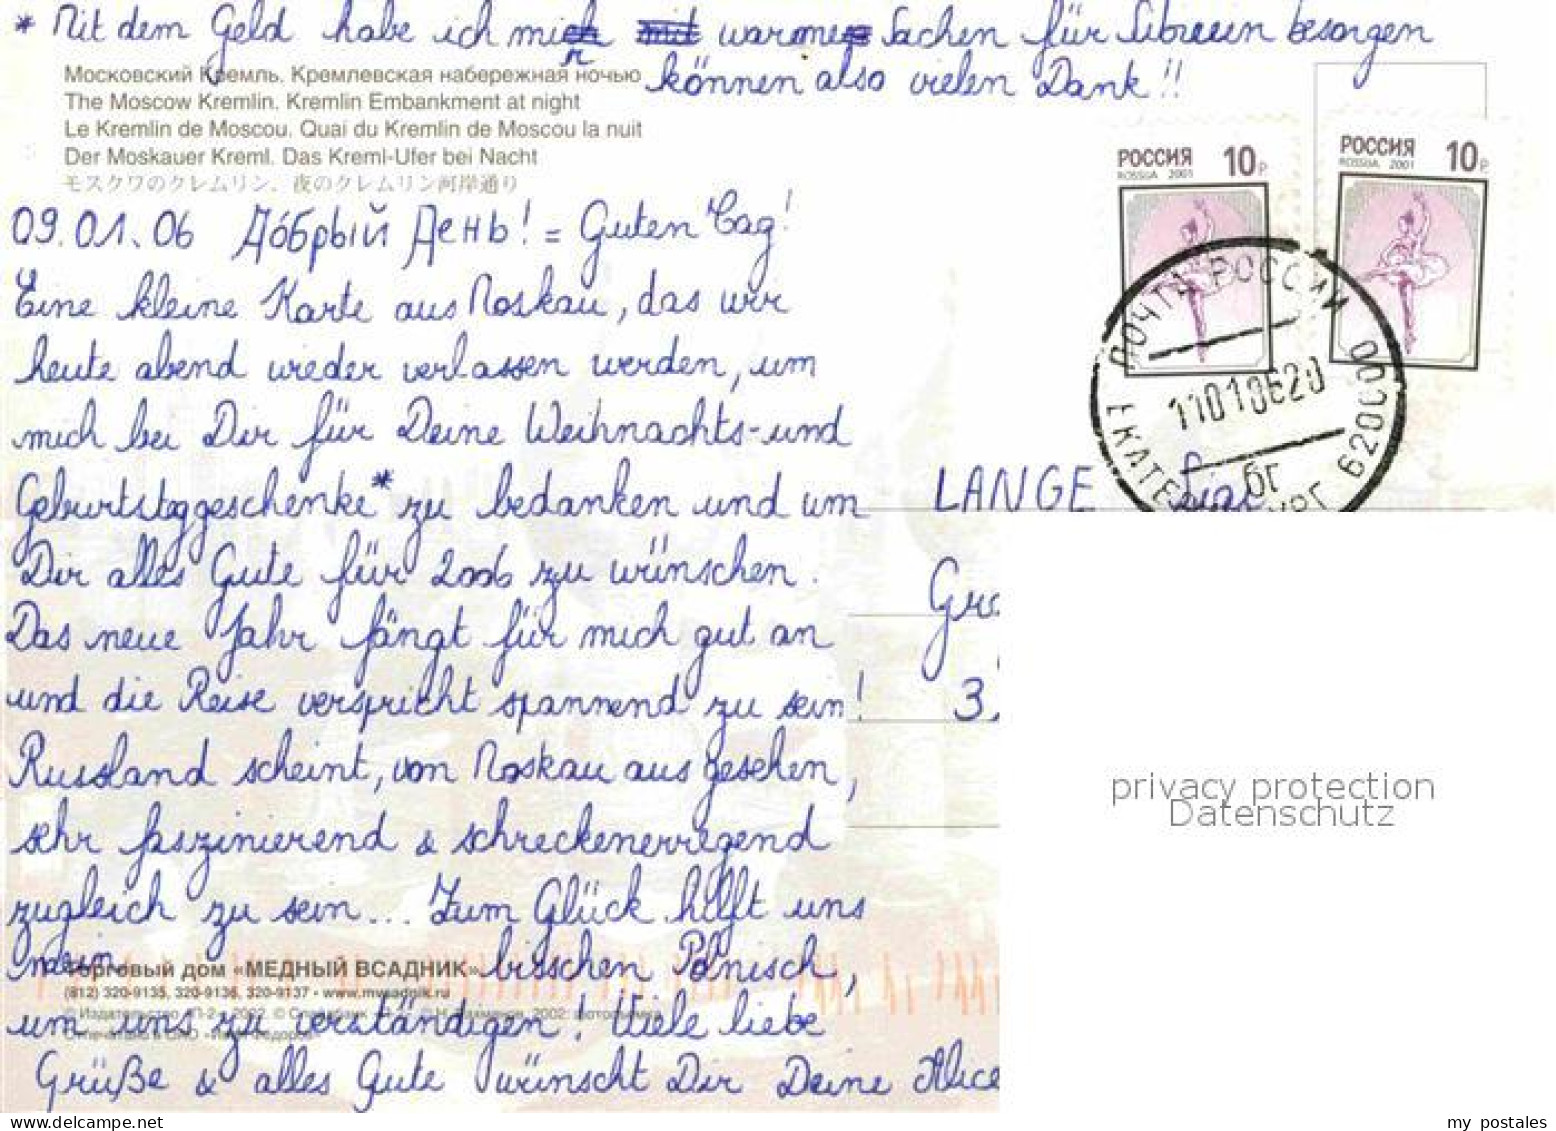 * Mit dem Geld habe ich mir warme Sachen für Sibirien besorgen
können also vielen Dank!!
Московский Кремль. Кремлевская набережная ночью
The Moscow Kremlin. Kremlin Embankment at night
Le Kremlin de Moscou. Quai du Kremlin de Moscou la nuit
Der Moskauer Kreml. Das Kreml-Ufer bei Nacht
モスクワのクレムリン、夜のクレムリン河岸通り
РОССИЯ 10 Р
ROSSIJA 2001
РОССИЯ 10 Р
ROSSIJA 2001
ПОЧТА РОССИИ
620000
11010620
бг
09.01.06 Добрый День! = Guten Tag!
Eine kleine Karte aus Moskau, das wir
heute abend wieder verlassen werden, um
mich bei Dir für Deine Weihnachts- und
Geburtstaggeschenke* zu bedanken und um
Dir alles Gute für 2006 zu wünschen.
Das neue Jahr fängt für mich gut an
und die Reise verspricht spannend zu sein!
Russland scheint, von Moskau aus gesehen,
sehr faszinierend & schreckenerregend
zugleich zu sein... Zum Glück hilft uns
mein bisschen Polnisch,
um uns zu verständigen! Viele liebe
Grüße & alles Gute wünscht Dir Deine Alice
LANGE
Gro
3,
Торговый дом «МЕДНЫЙ ВСАДНИК»
(812) 320-9135, 320-9136, 320-9137 • www.mvsadnik.ru
privacy protection
Datenschutz
my postales